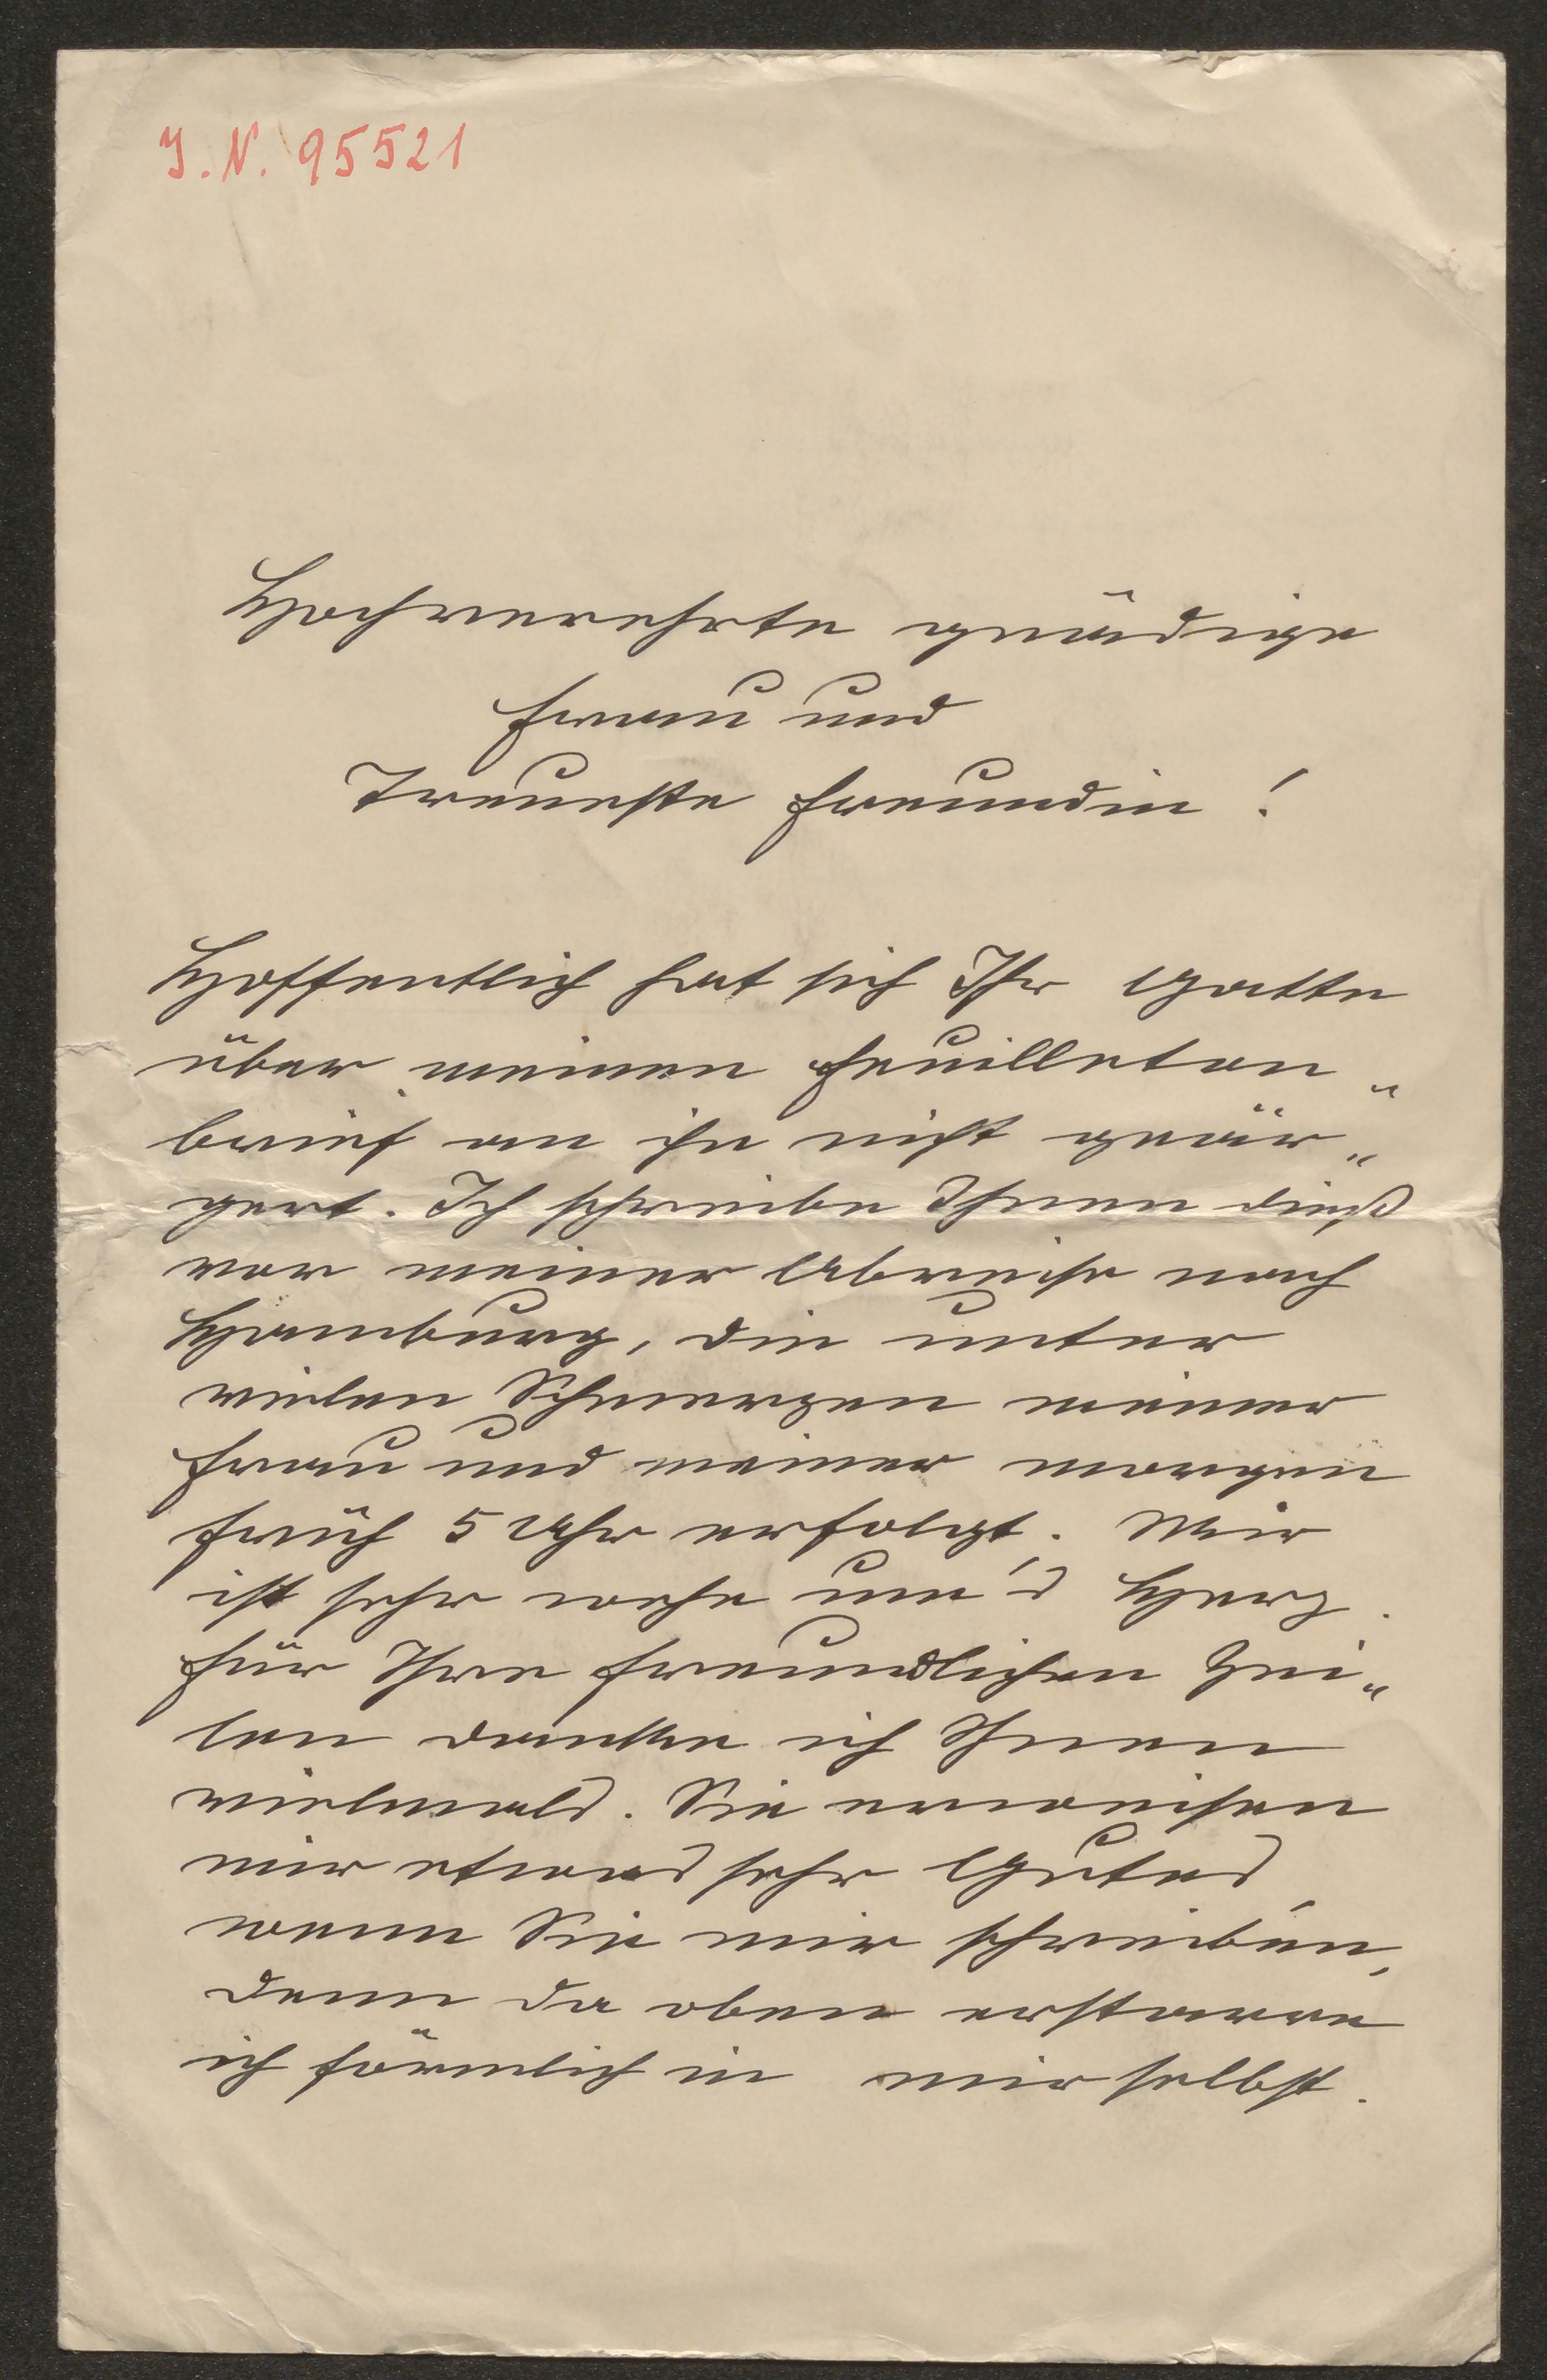 J. N. 95521
Hochverehrte gnädige
Frau und
Treueste Freundin!
Hoffentlich hat sich Ihr Gatte
über meinen Feuilleton„
brief an ihn nicht geär„
gert. Ich schreibe Ihnen dieß
vor meiner Abreise nach
Hamburg, die unter
vielen Schmerzen meiner
Frau und meiner morgen
früh 5 Uhr erfolgt. Mir
ist sehr wehe um's Herz.
Für Ihre freundlichen Zei„
len danke ich Ihnen
vielmals. Sie erweisen
mir etwas sehr Gutes,
wenn Sie mir schreiben,
denn da oben erstarre
ich förmlich in mir selbst.